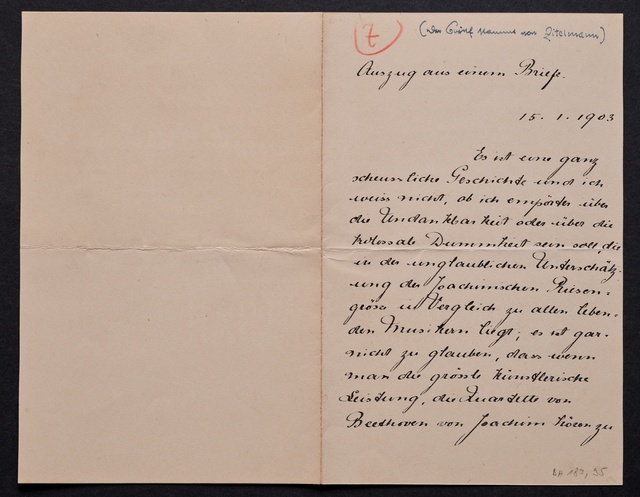 7
(Der Brief stammt von Zitelmann)
Auszug aus einem Briefe.
15. 1. 1903
Es ist eine ganz
scheussliche Geschichte und ich
weiss nicht, ob ich empörter über
die Undankbarkeit oder über die
kolossale Dummheit sein soll, die
in der unglaublichen Unterschätz-
ung der Joachimischen Riesen-
grösse im Vergleich zu allen leben-
den Musikern liegt; es ist gar-
nicht zu glauben, dass wenn
man die grösste künstlerische
Leistung, die Quartette von
Beethoven von Joachim hören zu